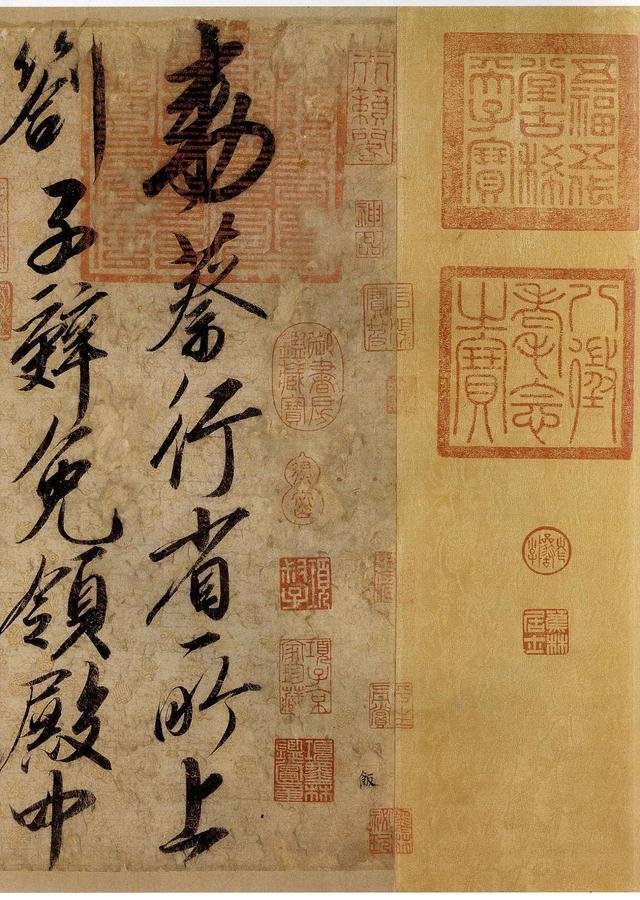 五福五代
堂古稀
天子寶
八徵
耄念
之寶
蕉林
居士
天籟閣
神品
御書房
鑑藏寶
項叔子
項子京
家珍藏
項墨林
鑑賞章
勅蔡行省所上
劄子辭免領殿中